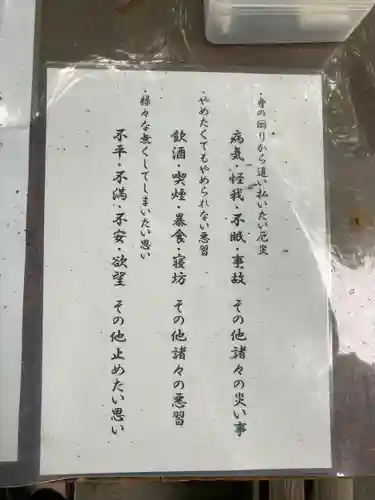 ・身の回りから追い払いたい厄災
病気・怪我・不眠・事故 その他諸々の災い事
・やめたくてもやめられない悪習
飲酒・喫煙・暴食・寝坊 その他諸々の悪習
・様々な無くしてしまいたい思い
不平・不満・不安・欲望 その他止めたい思い